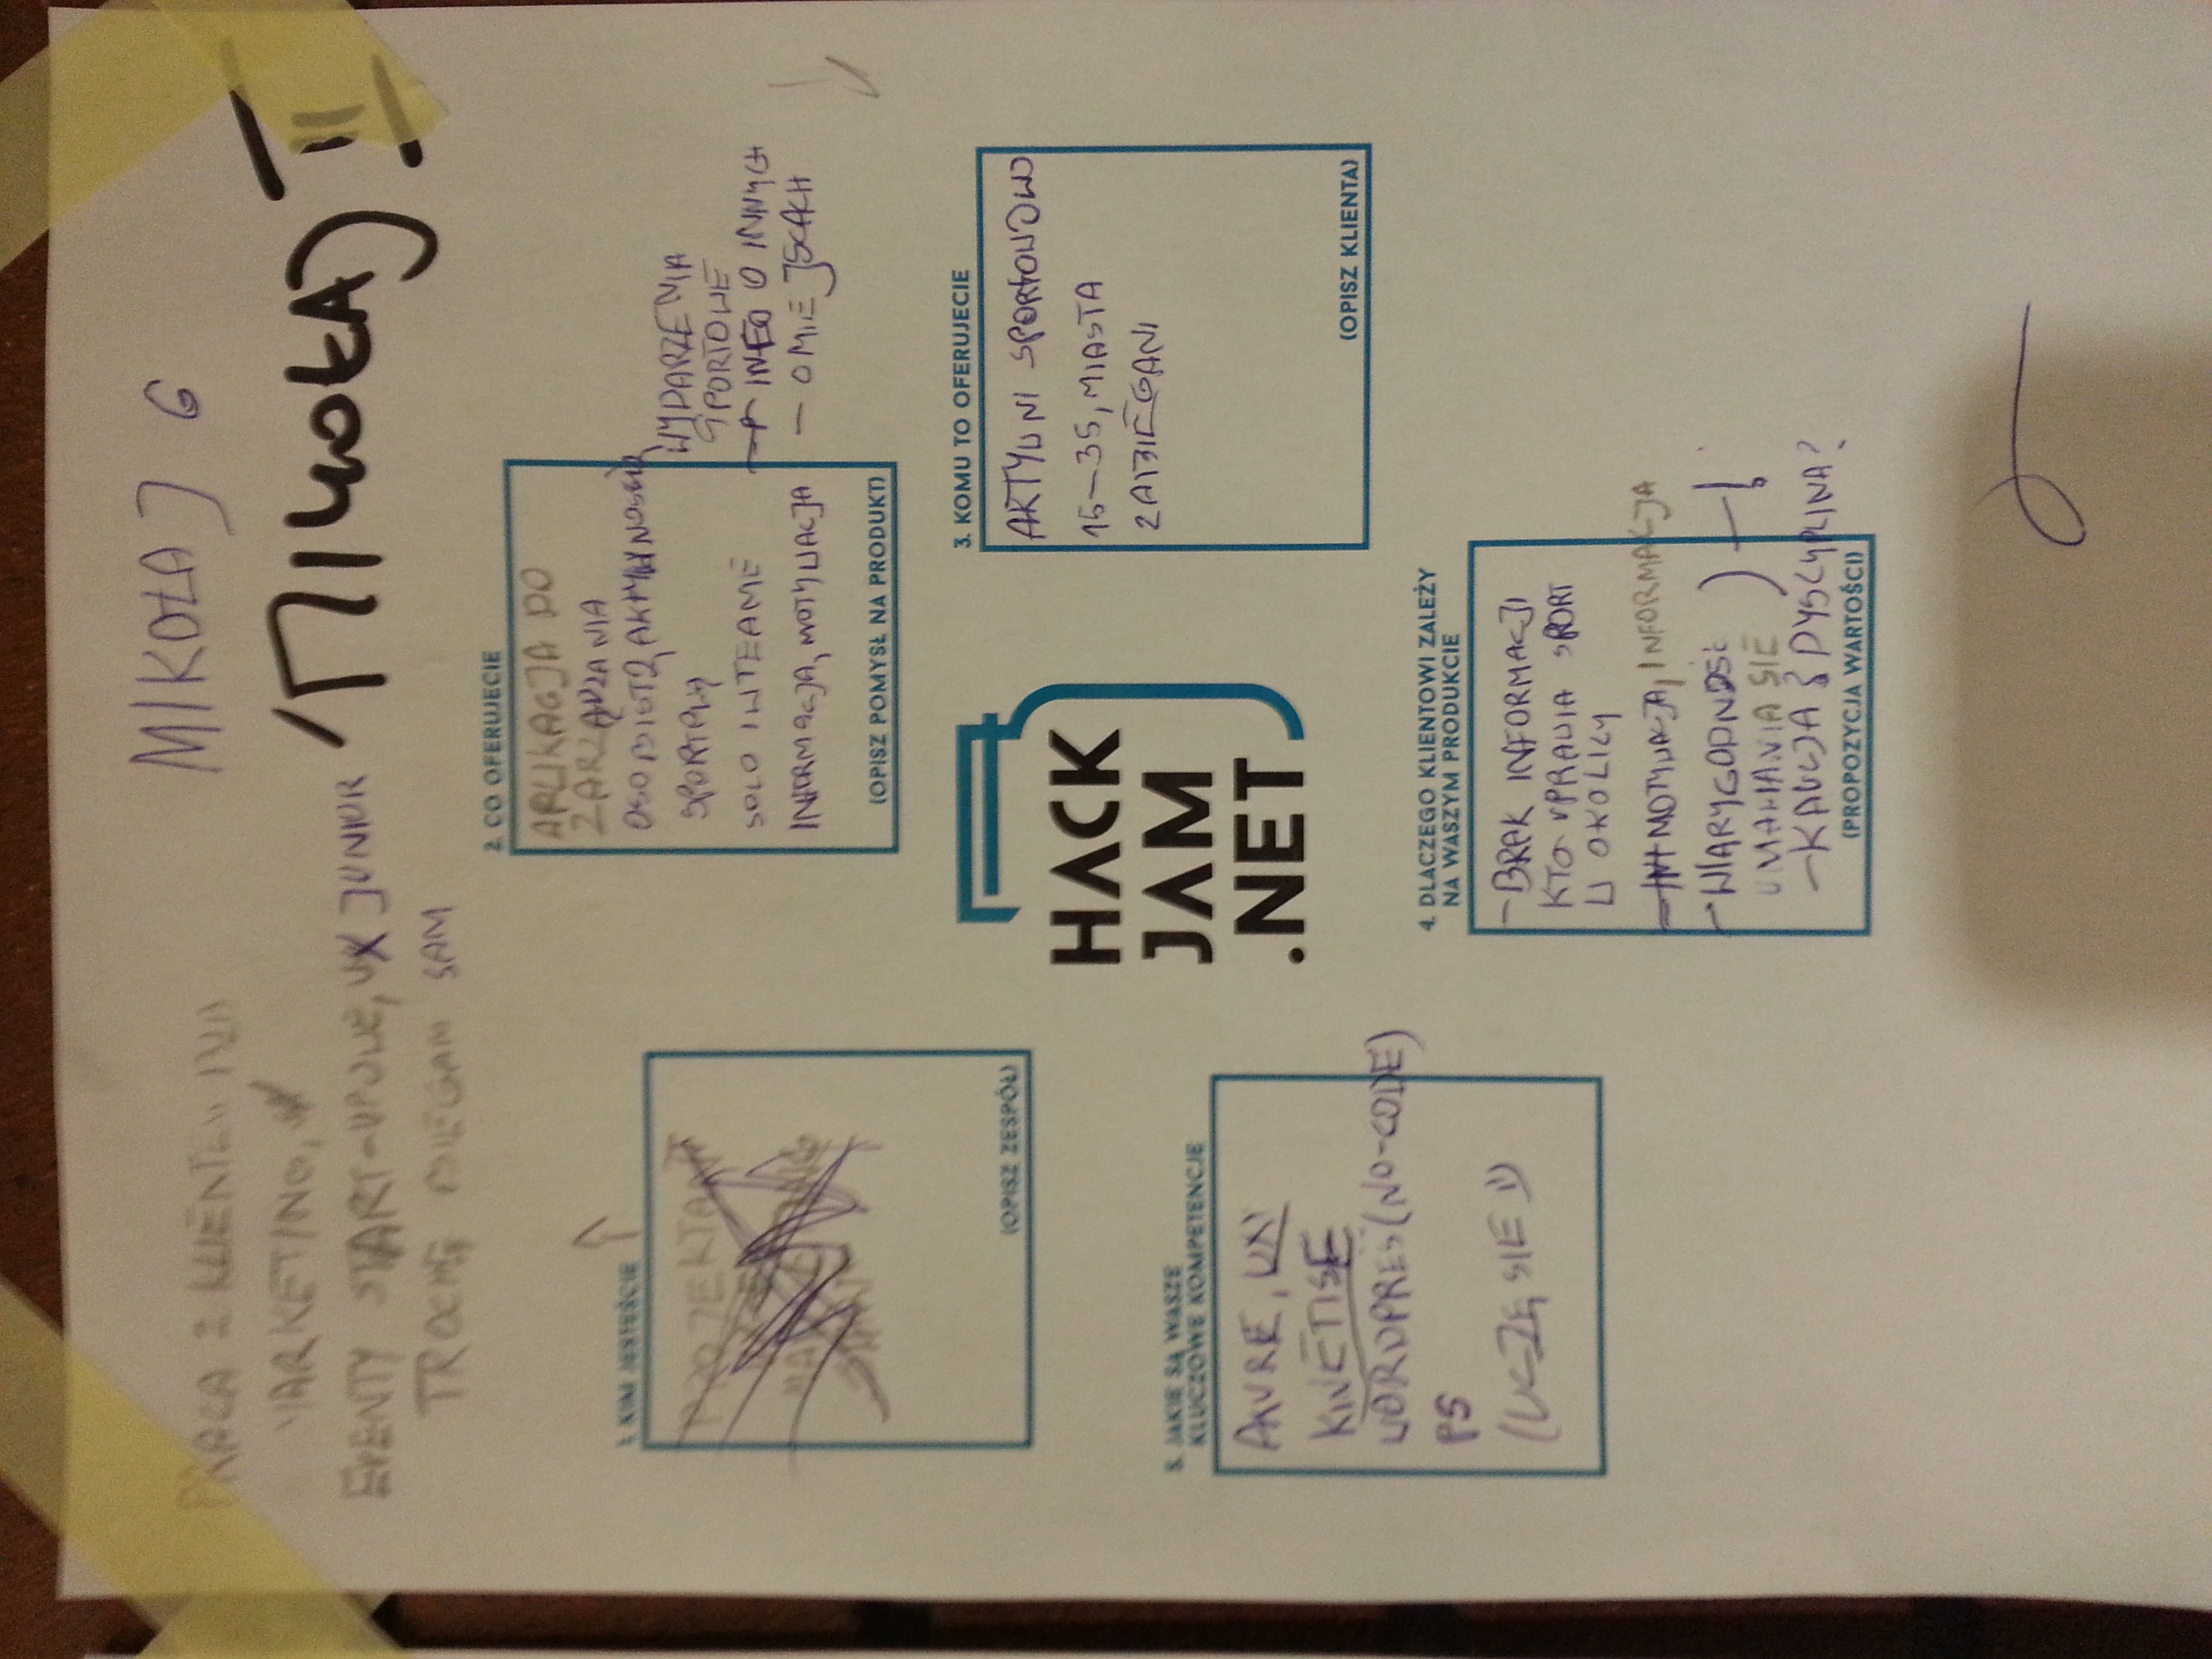 MIKOŁAJ G
MIKOŁAJ !!
PRACA Z KLIENTEM
MARKETING,
EVENTY START-UPOWE, UX JUNIOR
TROCHĘ BIEGAM SAM
1. KIM JESTEŚCIE
PROJEKTANT
(OPISZ ZESPÓŁ)
2. CO OFERUJECIE
APLIKACJA DO
ZARZĄDZANIA
OSOBISTĄ AKTYWNOŚCIĄ
SPORTOWĄ
SOLO I W TEAMIE
INFORMACJA, MOTYWACJA
(OPISZ POMYSŁ NA PRODUKT)
WYDARZENIA
SPORTOWE
INFO O INNYCH
- O MIEJSCACH
3. KOMU TO OFERUJECIE
AKTYWNI SPORTOWO
15-35, MIASTA
ZABIEGANI
(OPISZ KLIENTA)
HACK
JAM
.NET
4. DLACZEGO KLIENTOWI ZALEŻY
NA WASZYM PRODUKCIE
- BRAK INFORMACJI
KTO UPRAWIA SPORT
W OKOLICY
- MOTYWACJA, INFORMACJA
- WIARYGODNOŚĆ
UMAWIANIA SIĘ
- KAUCJA & DYSCYPLINA?
(PROPOZYCJA WARTOŚCI)
5. JAKIE SĄ WASZE
KLUCZOWE KOMPETENCJE
AXURE, UX
KINETISE
WORDPRES (NO-CODE)
PS
(UCZĘ SIĘ :))